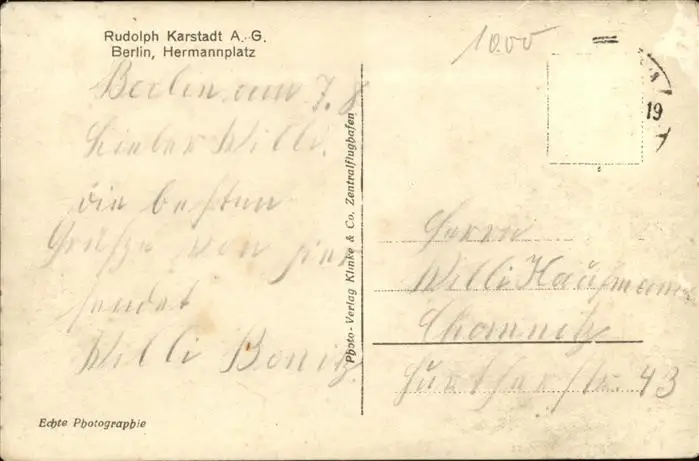 Rudolph Karstadt A.-G.
Berlin, Hermannplatz
1000
19
Berlin, am 7.8
Lieber Willi.
die besten
Grüße von hier
sendet
Willi Bonitz
Photo-Verlag Klinke & Co. Zentralflughafen
Herrn
Willi Haufmann
Chemnitz
43
Echte Photographie